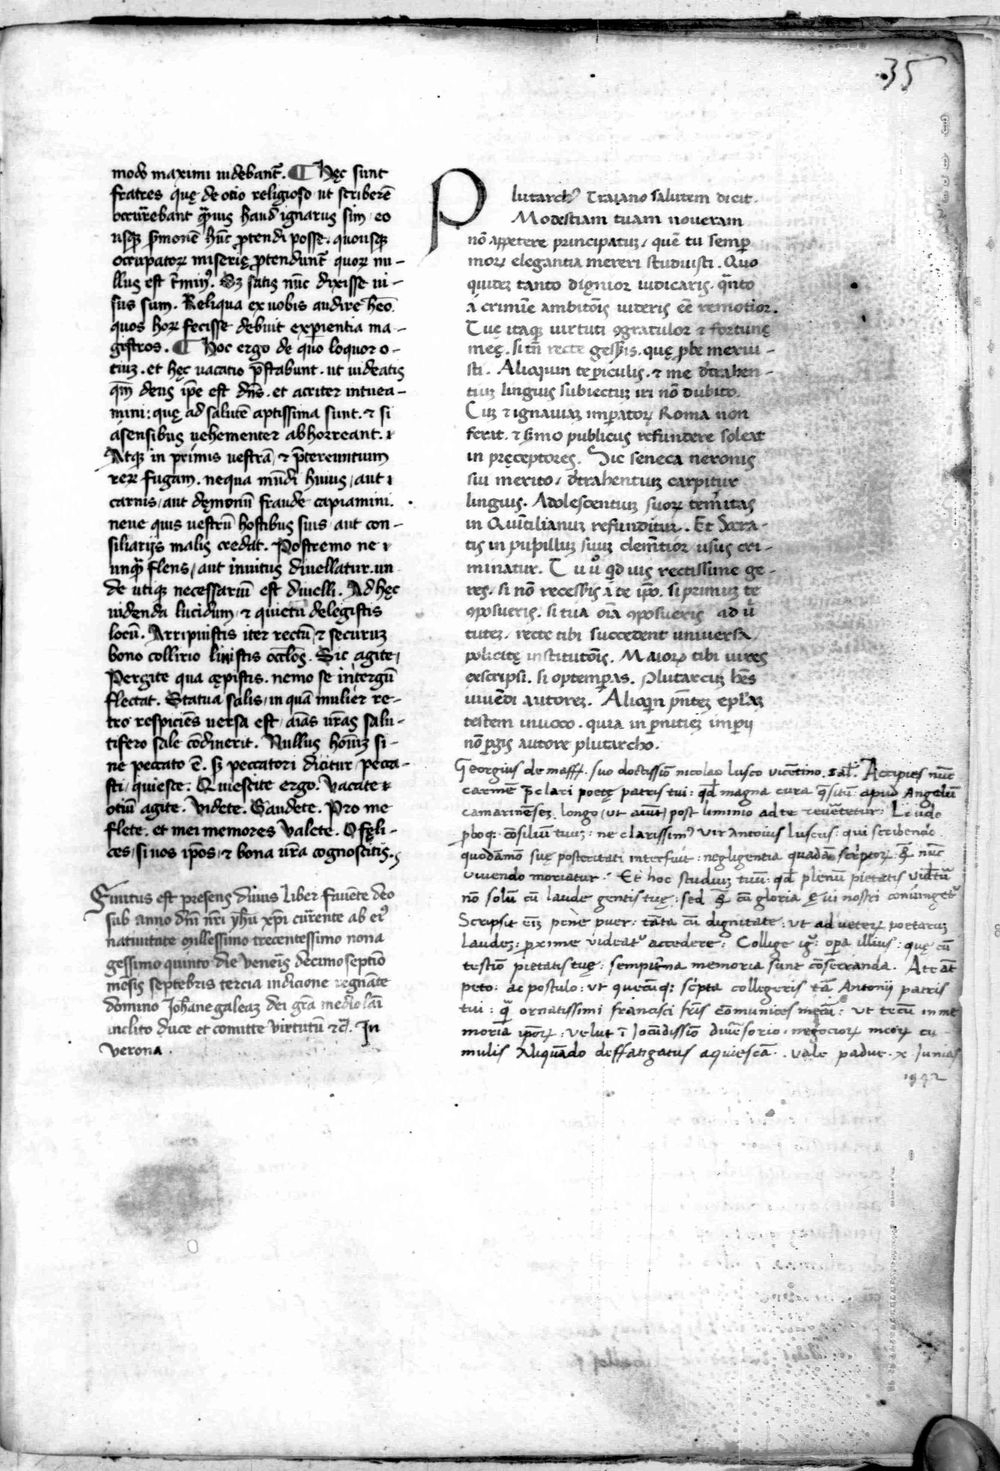 35
modo maximi uidebant̃. ¶ Hęc sunt
fratres quę de otio religioso ut scriberē
occurrebant qͣuis haud ignarus sim / eo
usqꝫ sermonē hūc ꝓtendi posse. quousqꝫ
occupatoꝝ miserię ꝓtendunt̃ quoꝝ nu-
llus est t̃minꝰ. Sꝫ satis nūc dixisse ui-
sus sum. Reliqua ex uobis audire
quos hoꝝ fecisse debuit exꝑientia ma-
gistros. ¶ Hoc ergo de quo loquor o-
tiuꝫ. et hęc uacatio p̄stabunt. ut uideatis
qm̄ deus ip̄e est dn̄s. et acriter intuea-
mini: quę ad salutē aptissima sunt. ⁊ si
á sensibus uehementer abhorreant.
Atqꝫ in primis uestrā / ⁊ p̄tereuntium
reꝝ fugam. nequa mūdi huius / aut
carnis / aut dęmonū fraude capiamini.
neue quis uestrū hostibus suis / aut con-
siliarijs malis credat. Postremo ne
unqͣ flens / aut inuitus diuellatur. un-
de utiqꝫ necessariū est diuelli. Ad hęc
uidenda lucidum / ⁊ quietū delegistis
locū. Arripuistis iter rectū / ⁊ securuꝫ
bono collirio linistis oc̄los. Sic agite /
Pergite qua cępistis. nemo se in tergū
flectat. Statua salis / in quā mulier re-
tro respiciēs uersa est / aīas ur̄as salu-
tifero sale cōdiuerit. Nullus homīꝫ si-
ne peccato ē. sꝫ peccatori dicitur / pecca-
sti / quiesce: Quiescite ergo. Vacate
otiū agite. Videte. Gaudete. Pro me
flete. et mei memores Valete. O fęli-
ces / si uos ip̄os / ⁊ bona ur̄a cognoscitis.
Finitus est presens diuus liber fauēte deo
sub anno dn̄i nr̄i yhū xp̄i curente ab eiꝰ
natiuitate millessimo trecentessimo nona
gessimo quinto die veneris decimoseptio
mēsis septēbris tercia indicione regnāte
domino Johane galeaꝫ dei grā mediolāi
inclito duce et comitte virtutū ⁊c̄. In
verona.
Plutarchꝰ Traiano salutem dicit.
Modestiam tuam noueram
nō appetere principatuꝫ / quē tu semꝑ
moꝝ elegantia mereri studuisti. Quo
quideꝫ tanto dignior iudicaris. qͣnto
á crimīe ambitōis uideris eē remotior.
Tuę itaqꝫ uirtuti ꝯgratulor ⁊ fortunę
meę. si tn̄ recte gesseris. quę ꝓbe merui-
sti. Alioquin te ꝑiculis. ⁊ me detrahen-
tiuꝫ linguis subiectuꝫ iri nō dubito.
Cuꝫ ⁊ ignauiaꝫ imꝑatoꝝ Roma non
ferit. ⁊ sermo publicus refundere soleat
in pręceptores. Sic seneca neronis
sui merito / detrahentiuꝫ carpitur
linguis. Adolescentiuꝫ suoꝝ temeritas
in Quintilianuꝫ refunditur. Et Socra-
tis in pupilluꝫ suuꝫ clementior usus cri-
minatur. Tu uͦ qͥd uis rectissime ge-
res. si nō recessis á te ip̄o. si primuꝫ te
ꝯposueris. si tua oīa ꝯposueris ad uir
tuteꝫ. recte tibi succedent uniuersa.
policitę institutōis. Maioꝝ tibi uires
exscripsi. si optemperas. Plutarcuꝫ hēs
uiuēdi autoreꝫ. Alioquin pn̄teꝫ epl̄aꝫ
testem inuoco. quia in ꝑnitieꝫ imperij
nō ꝑgis autore plutarcho.
Georgius de maff. suo doctissīo nicolao lusco vicētino. sal. Accipies nūc
carmē p̄clari poetę patris tui: qd̄ magna cura qͥsitū apud Angelū
camarinēseꝫ. longo / ut aiūt / post liminio ad te reuertetur: Laudo
ꝓboqꝫ cōsiliuꝫ tuuꝫ: ne clarissimꝰ vir Antoius luscus: qui scribendo
quodāmō suę posteritati interfuit: negligentia quadā scriptoꝝ nunc
viuendo moriatur. Et hoc studiuꝫ tuū: qd̄ plenū pietatis videtur
nō solū cū laude gentis tuę: sed cū gloria sęculi nostri coniungetur
Scripsit eīꝫ pene puer: tāta cū dignitate: ut ad ueteꝝ poetaruꝫ
laudes: ꝓxime videatꝰ accedere: Collige igͥ: oꝑa illius: quę cū
testīo pietatis tuę: sempiterna memoria sunt cōsecranda. A te aūt
peto: ac postulo: ut quecūqꝫ: scripta collegeris tā Antonij patris
tui: qͣ ornatissimi francisci fr̄is cōmunices mecū: ut tecū in me
moria ip̄oꝝ: velut ī iocūdissīo diuersorio: negocioꝝ meoꝝ cu-
mulis aliquādo deffatigatus aquiescā. vale padue. x Junias
1442